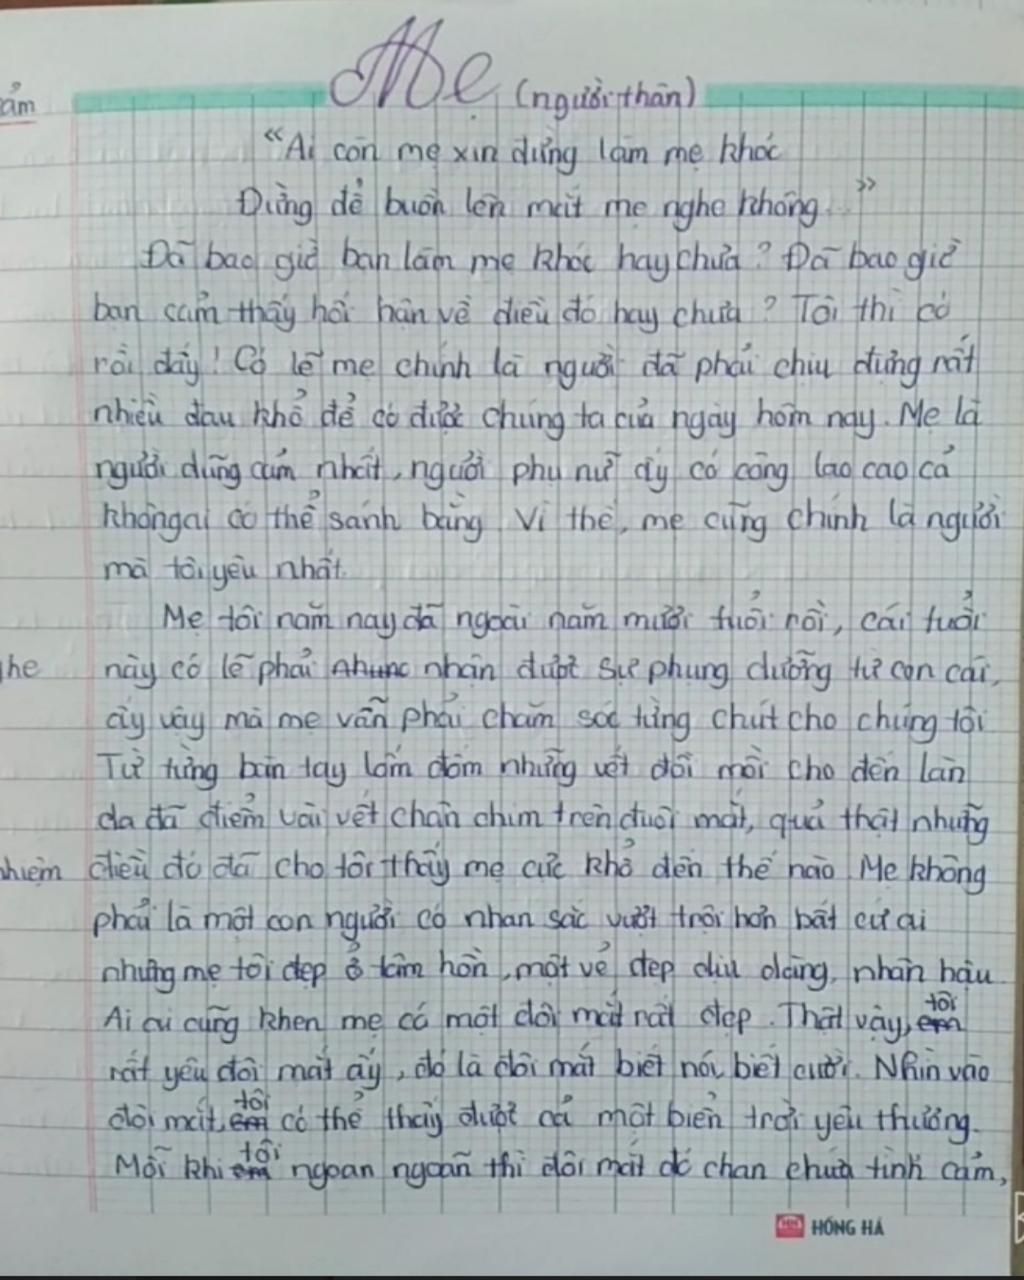 Mẹ (người thân)
ảm
"Ai còn mẹ xin đừng làm mẹ khóc
Đừng để buồn lên mắt mẹ nghe không."
Đã bao giờ bạn làm mẹ khóc hay chưa? Đã bao giờ
bạn cảm thấy hối hận về điều đó hay chưa? Tôi thì có
rồi đấy! Có lẽ mẹ chính là người đã phải chịu đựng rất
nhiều đau khổ để có được chúng ta của ngày hôm nay. Mẹ là
người dũng cảm nhất, người phụ nữ ấy có công lao cao cả
không ai có thể sánh bằng. Vì thế, mẹ cũng chính là người
mà tôi yêu nhất.
Mẹ tôi năm nay đã ngoài năm mươi tuổi rồi, cái tuổi
này có lẽ phải nhận được sự phụng dưỡng từ con cái,
ghe
ấy vậy mà mẹ vẫn phải chăm sóc từng chút cho chúng tôi
Từ từng bàn tay lốm đốm những vết đồi mồi cho đến làn
da đã điểm vài vết chân chim trên đuôi mắt, quả thật những
điều đó đã cho tôi thấy mẹ cực khổ đến thế nào. Mẹ không
nhiệm
phải là một con người có nhan sắc vượt trội hơn bất cứ ai
nhưng mẹ tôi đẹp ở tâm hồn, một vẻ đẹp dịu dàng, nhân hậu
Ai ai cũng khen mẹ có một đôi mắt rất đẹp. Thật vậy, em tôi
rất yêu đôi mắt ấy, đó là đôi mắt biết nói, biết cười. Nhìn vào
đôi mắt, em tôi có thể thấy được cả một biển trời yêu thương.
Mỗi khi em tôi ngoan ngoãn thì đôi mắt đó chan chứa tình cảm,
HỒNG HÀ